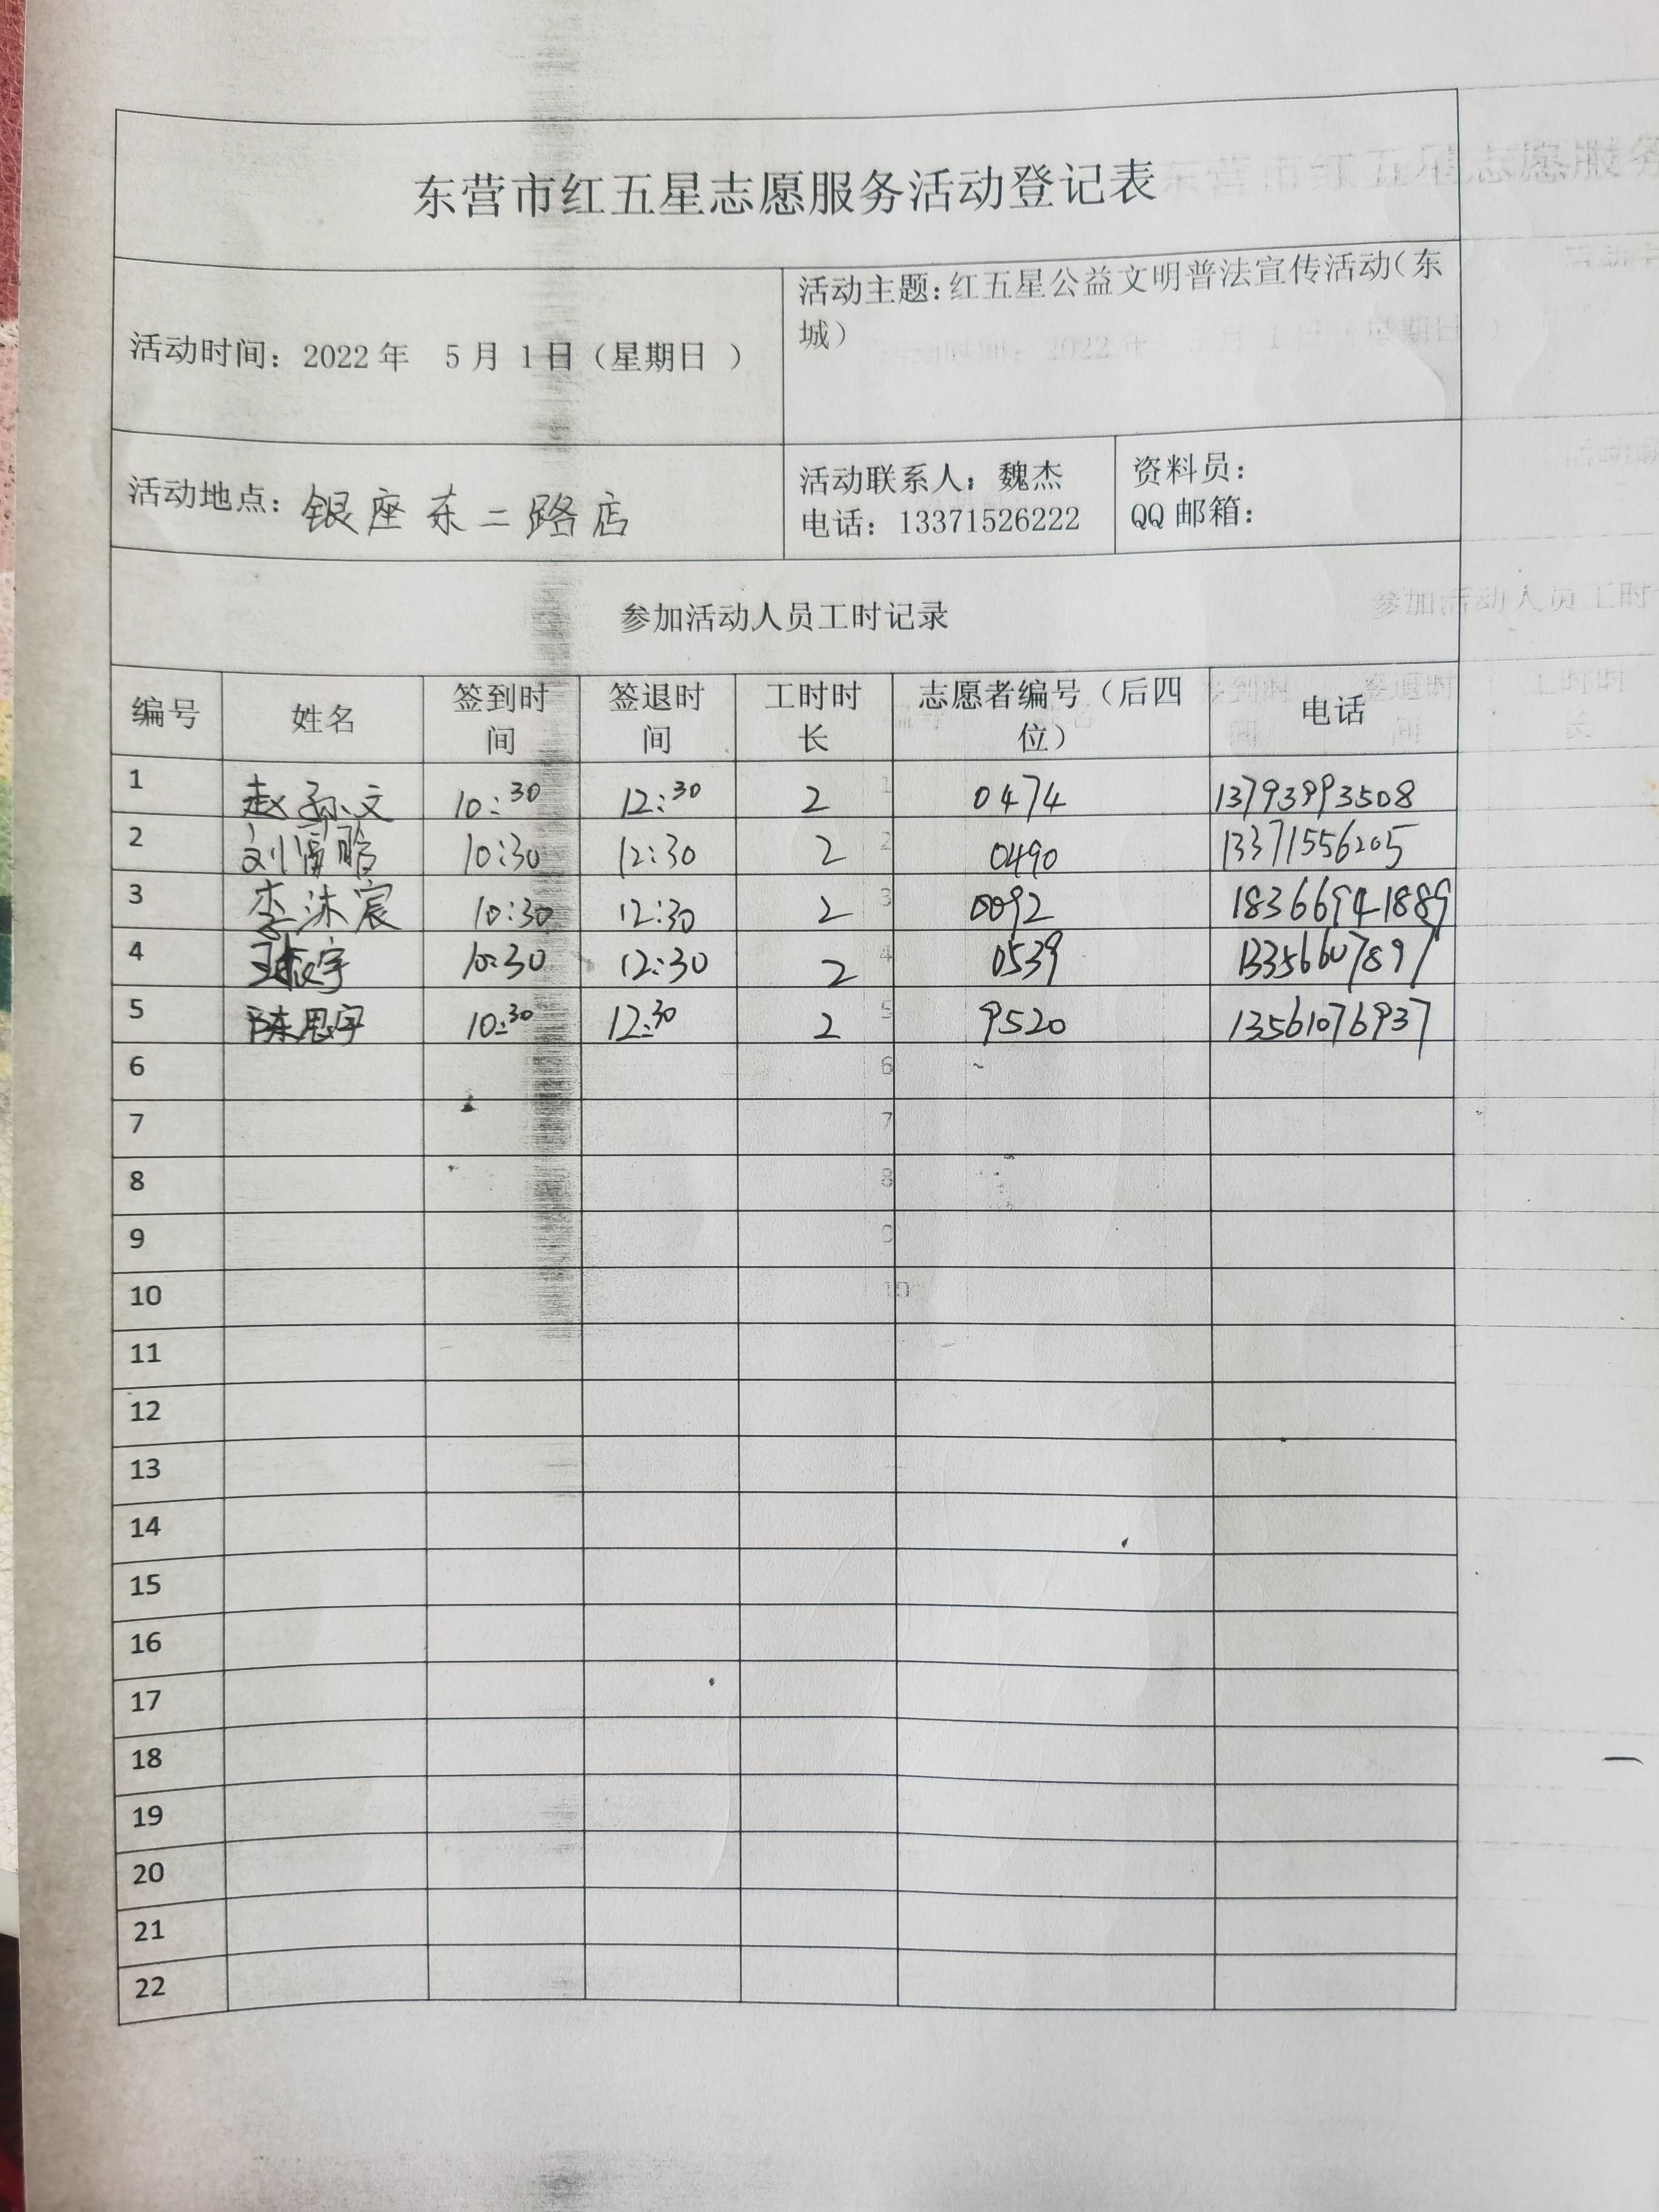 东营市红五星志愿服务活动登记表
活动时间：2022年 5月 1日（星期日 ）
活动主题：红五星公益文明普法宣传活动（东
城）
活动地点：银座东二路店
活动联系人：魏杰
电话：13371526222
资料员：
QQ邮箱：
参加活动人员工时记录
编号 姓名 签到时间 签退时间 工时时长 志愿者编号（后四位） 电话
1 赵孙文 10:30 12:30 2 0474 13793993508
2 刘 10:30 12:30 2 0490 13371556205
3 李沐宸 10:30 12:30 2 0092 18366941889
4 10:30 12:30 2 0539 13356607897
5 陈思宇 10:30 12:30 2 9520 13561076937
6
7
8
9
10
11
12
13
14
15
16
17
18
19
20
21
22